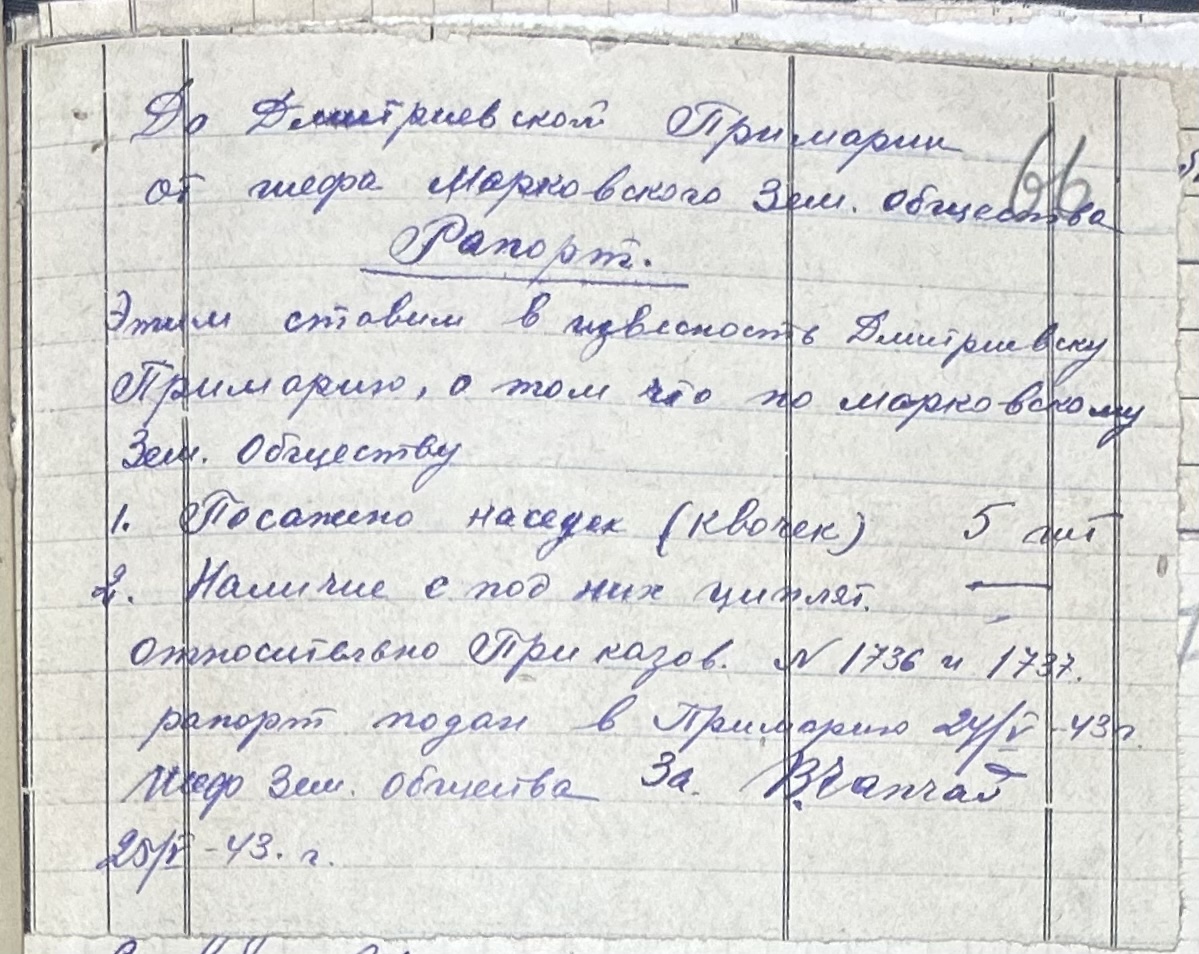 До Дмитриевской Примарии
66
от шефа Марковского Зем. общества
Рапорт.
Этим ставим в извесность Дмитриевску
Примарию, о том что по марковскому
Зем. Обществу
1. Посажено наседек (квочек) 5 шт
2. Наличие с под них циплят. —
относительно Приказов. N 1736 и 1737.
рапорт подан в Примарию 24/V -43 г
Шеф Зем. общества За.
25/V -43. г.